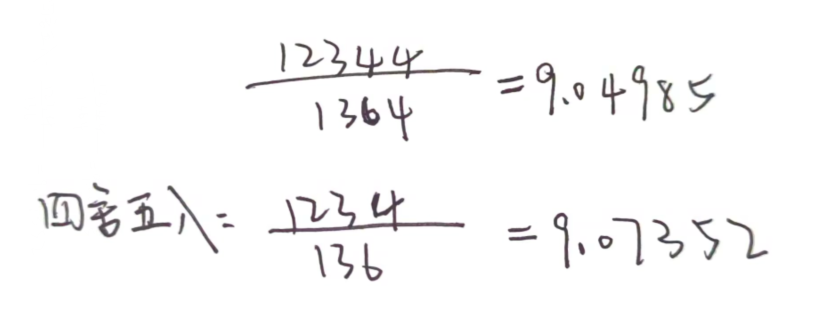 12344
1364
=9.04985
四舍五入=
1234
136
=9.07352